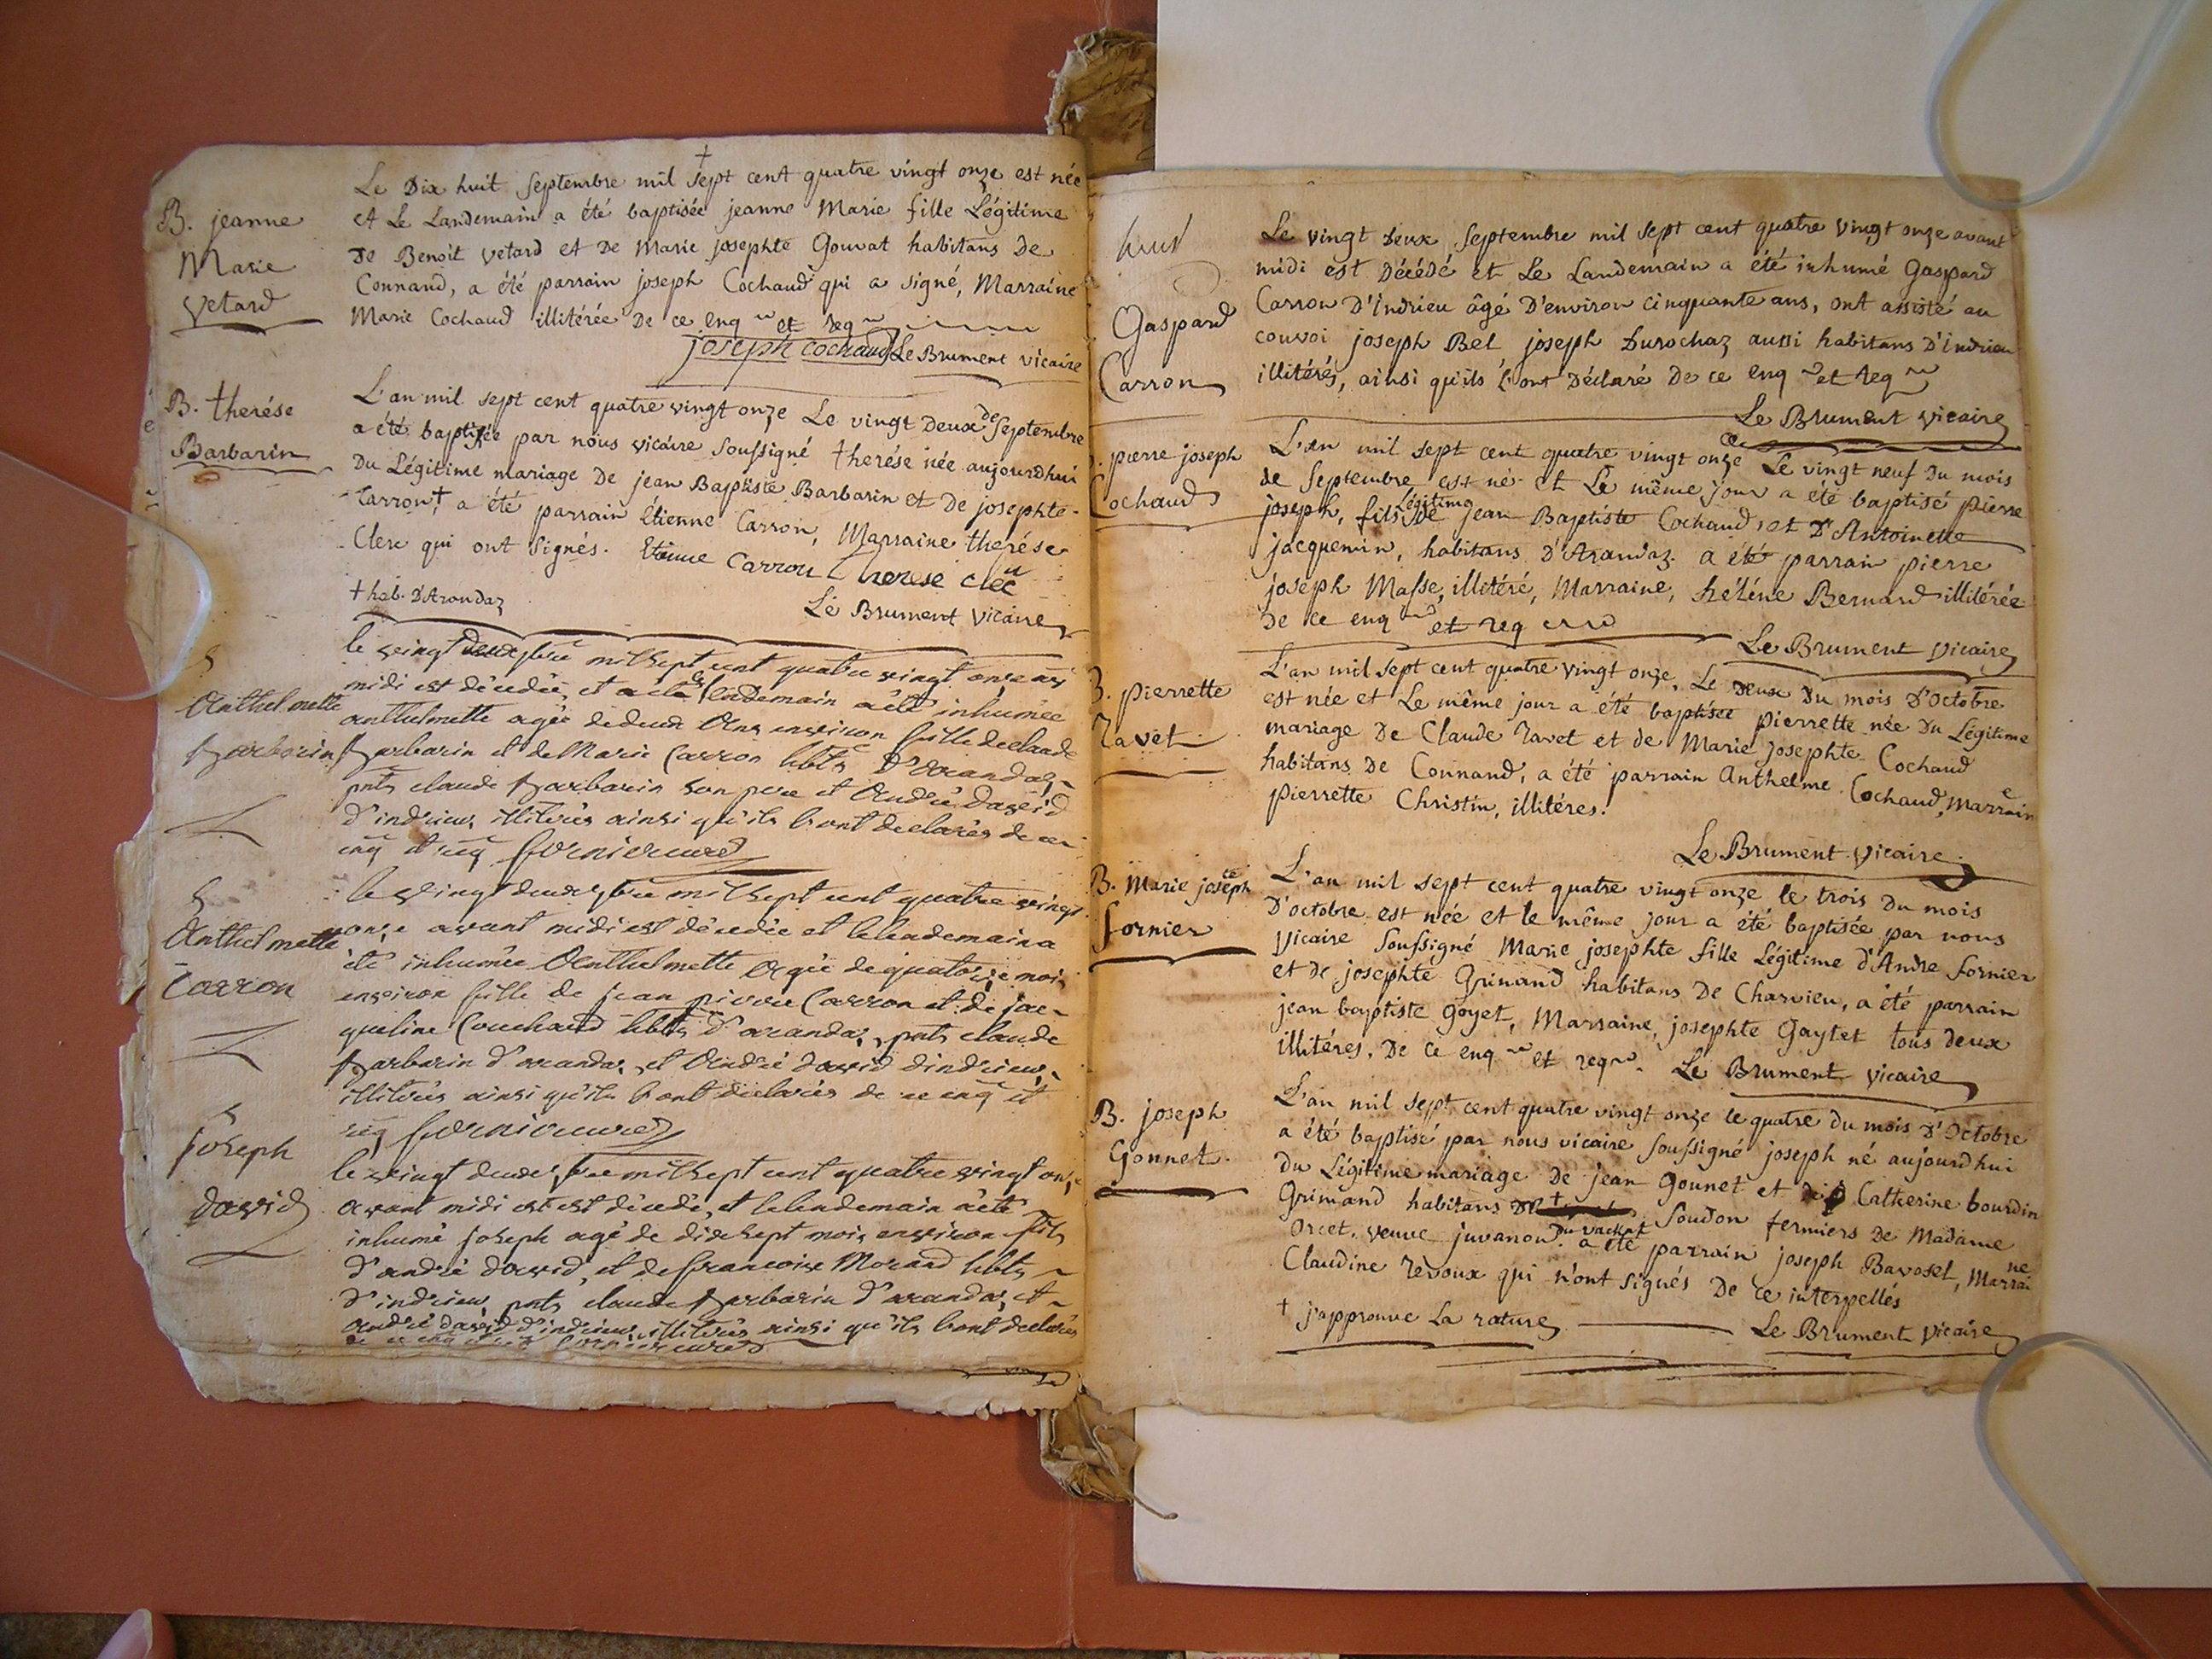 †
Le Dix huit Septembre mil sept cent quatre vingt onze est née
et Le Landemain a été baptisée jeanne Marie fille Légitime
De Benoit vetard et De Marie josephte Gouvat habitans De
Connand, a été parrain joseph Cochaud qui a signé, Marraine
Marie Cochaud illitérée De ce enq et req
joseph cochaud Le Brument vicaire
B. jeanne
Marie
Vetard
L'an mil sept cent quatre vingt onze Le vingt Deux de Septembre
a été baptisée par nous vicaire Soussigné therése née aujourdhui
Du Légitime mariage De jean Baptiste Barbarin et De josephte
Carron† a été parrain Étienne Carron, Marraine therése
Clerc qui ont Signés. Etienne Carron Therese clec
† hab. D'Arandaz
Le Brument Vicaire
B. therése
Barbarin
le vingt deux sbre mil sept cent quatre vingt onze av
midi est décedée, et le lendemain a été inhumée
anthelmette agée de deux Ans environ fille de claude
Barbarin et de Marie Carron hbts D'arandaz
pnts claude Barbarin son pere et André david
d'indrieu, illiterés ainsi qu'ils l'ont declarés de ce
enq et req fornier curé
Anthelmette
Barbarin
le vingt deux sbre mil sept cent quatre vingt
onze avant midi est décedée et le lendemain a
été inhumée Anthelmette Agée de quatorze mois
environ fille de jean pierre Carron et de jac-
queline Couchaud hbts d'arandaz, pnts claude
Barbarin d'arandaz, et André david d'indrieu,
illiterés ainsi qu'ils l'ont declarés de ce enq et
req fornier curé
Anthelmette
Carron
le vingt deux sbre mil sept cent quatre vingt onze
avant midi est est décedé, et le lendemain a été
inhumé joseph agé de dix sept mois environ fils
d'andré david, et de francoise Morand hbts
d'indrieu, pnts claude Barbarin d'arandaz, et
andré david d'indrieu, illiterés ainsi qu'ils l'ont declarés
de ce enq et req fornier curé
joseph
david
Le vingt Deux Septembre mil Sept cent quatre vingt onze avant
midi est Décédé et Le Landemain a été inhumé Gaspard
Carron D'Indrieu âgé D'environ cinquante ans, ont assisté au
convoi joseph Bel joseph Durochaz aussi habitans D'indrieu
illitérés, ainsi qu'ils l'ont Déclaré De ce enq et req
Le Brument vicaire
Gaspard
Carron
L'an mil sept cent quatre vingt onze Le vingt neuf Du mois
de Septembre est né et Le même jour a été baptisé pierre
joseph, fils Légitime De jean Baptiste Cochaud, et D'Antoinette
jacquemin, habitans D'Arandaz. a été parrain pierre
joseph Masse, illitéré, Marraine, héléne Bernard illitérée
De ce enq et req
Le Brument Vicaire
pierre joseph
Cochaud
L'an mil sept cent quatre vingt onze, Le Deux Du mois D'Octobre
est née et Le même jour a été baptisée pierrette née Du Légitime
mariage De Claude Ravet et de Marie josephte Cochaud
habitans De Connand, a été parrain Anthelme Cochaud, Marraine
pierrette Christin, illitéres.
Le Brument Vicaire
B. pierrette
Ravet
L'an mil sept cent quatre vingt onze, le trois Du mois
D'octobre est née et le même jour a été baptisée par nous
Vicaire Soussigné Marie josephte fille Légitime d'Andre fornier
et de josephte Grinand habitans De Charvieu, a été parrain
jean baptiste goyet, Marraine, josephte Gaytet tous deux
illitéres, De ce enq et req. Le Brument vicaire
B. Marie josephte
fornier
L'an mil sept cent quatre vingt onze le quatre du mois D'Octobre
a été baptisé par nous vicaire soussigné joseph né aujourdhui
Du Légitime mariage De jean Gonnet et de Catherine bourdin
Grimand habitans De † Soudon fermiers De Madame
Orcet, veuve juvanon Du vachat a été parrain joseph Bavoset, Marraine
Claudine Révoux qui n'ont signés De ce interpellés
† j'approuve La rature
Le Brument Vicaire
B. joseph
Gonnet